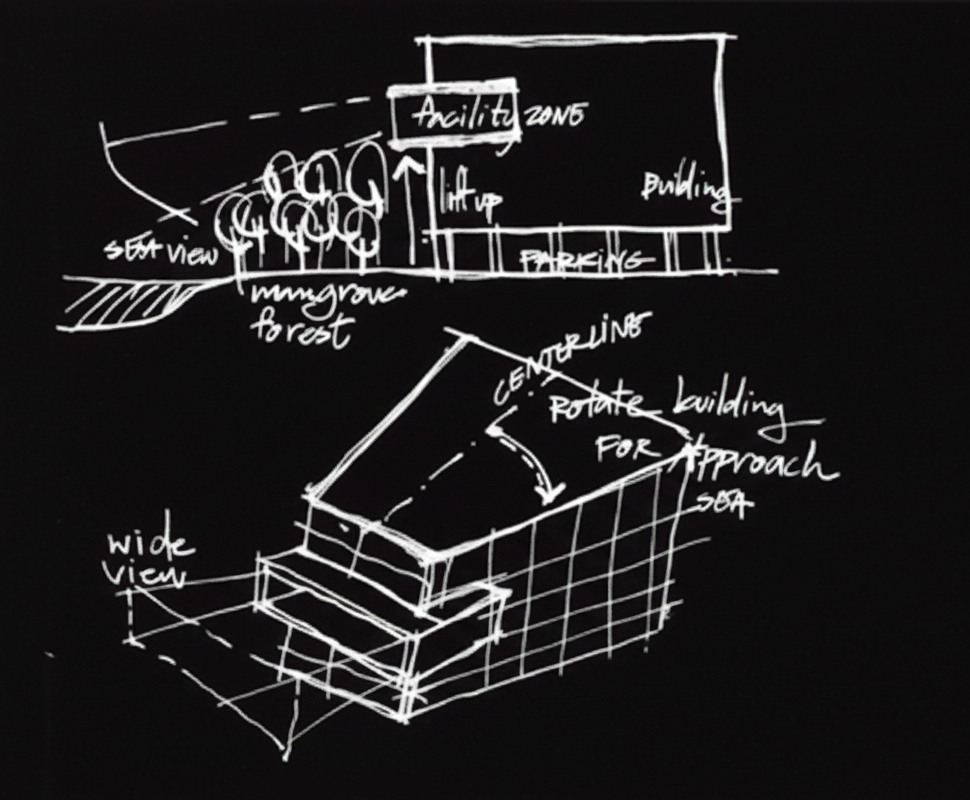 facility ZONE
lift up
Building
SEA view
PARKING
mangrove
forest
CENTERLINE
Rotate building
FOR Approach
SEA
wide
view